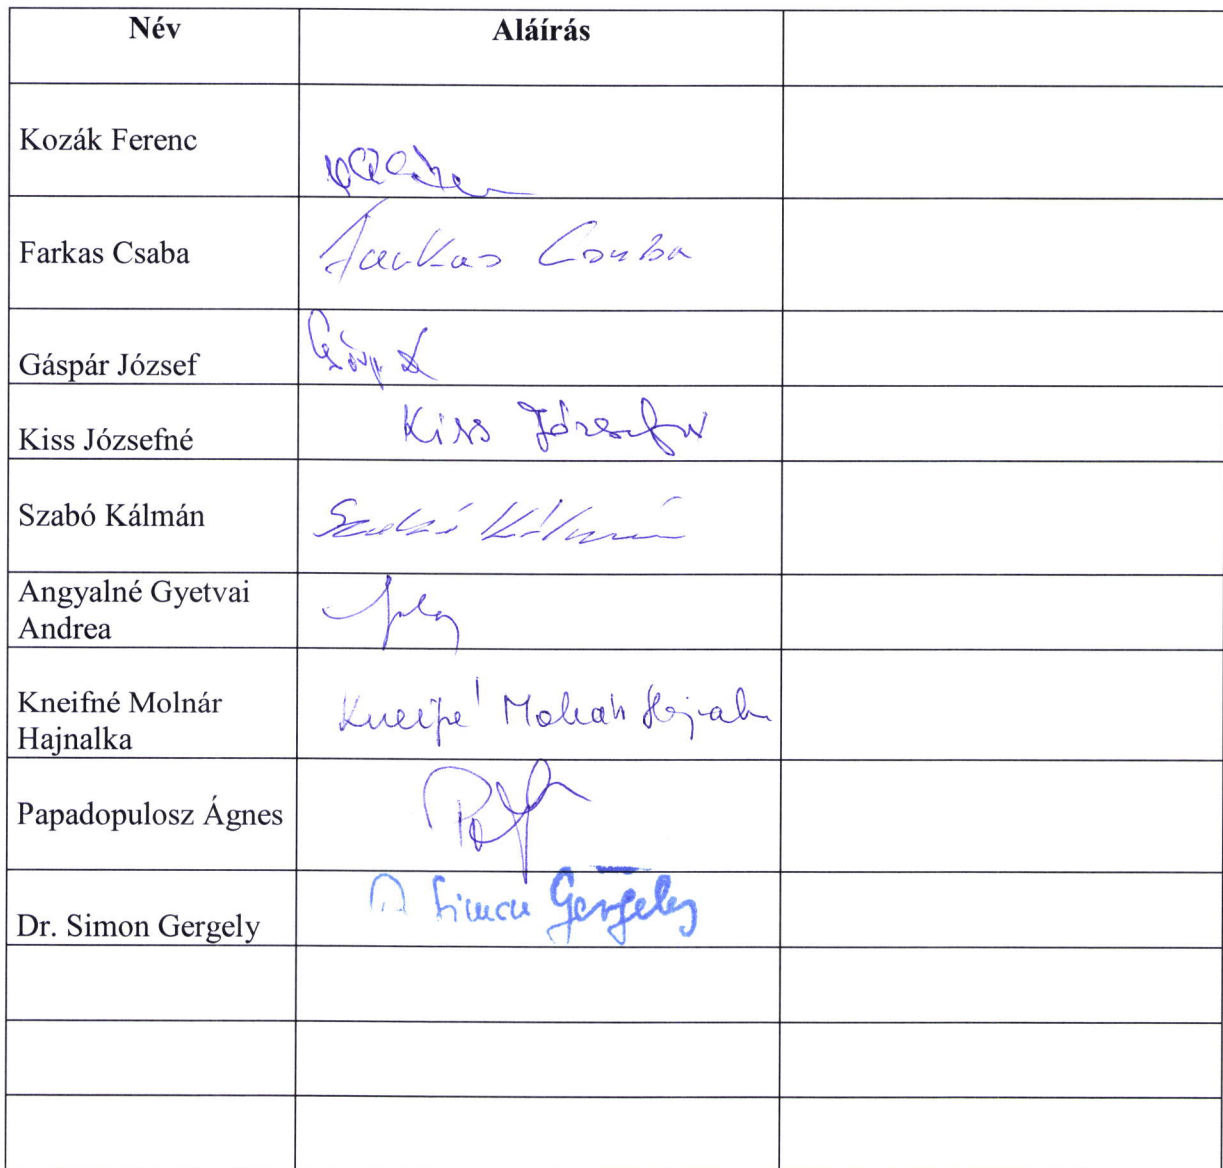 Név Aláírás
Kozák Ferenc
Farkas Csaba Farkas Csaba
Gáspár József
Kiss Józsefné Kiss Józsefné
Szabó Kálmán Szabó Kálmán
Angyalné Gyetvai
Andrea
Kneifné Molnár
Hajnalka
Kneifné Molnár Hajnalka
Papadopulosz Ágnes
Dr. Simon Gergely Dr Simon Gergely